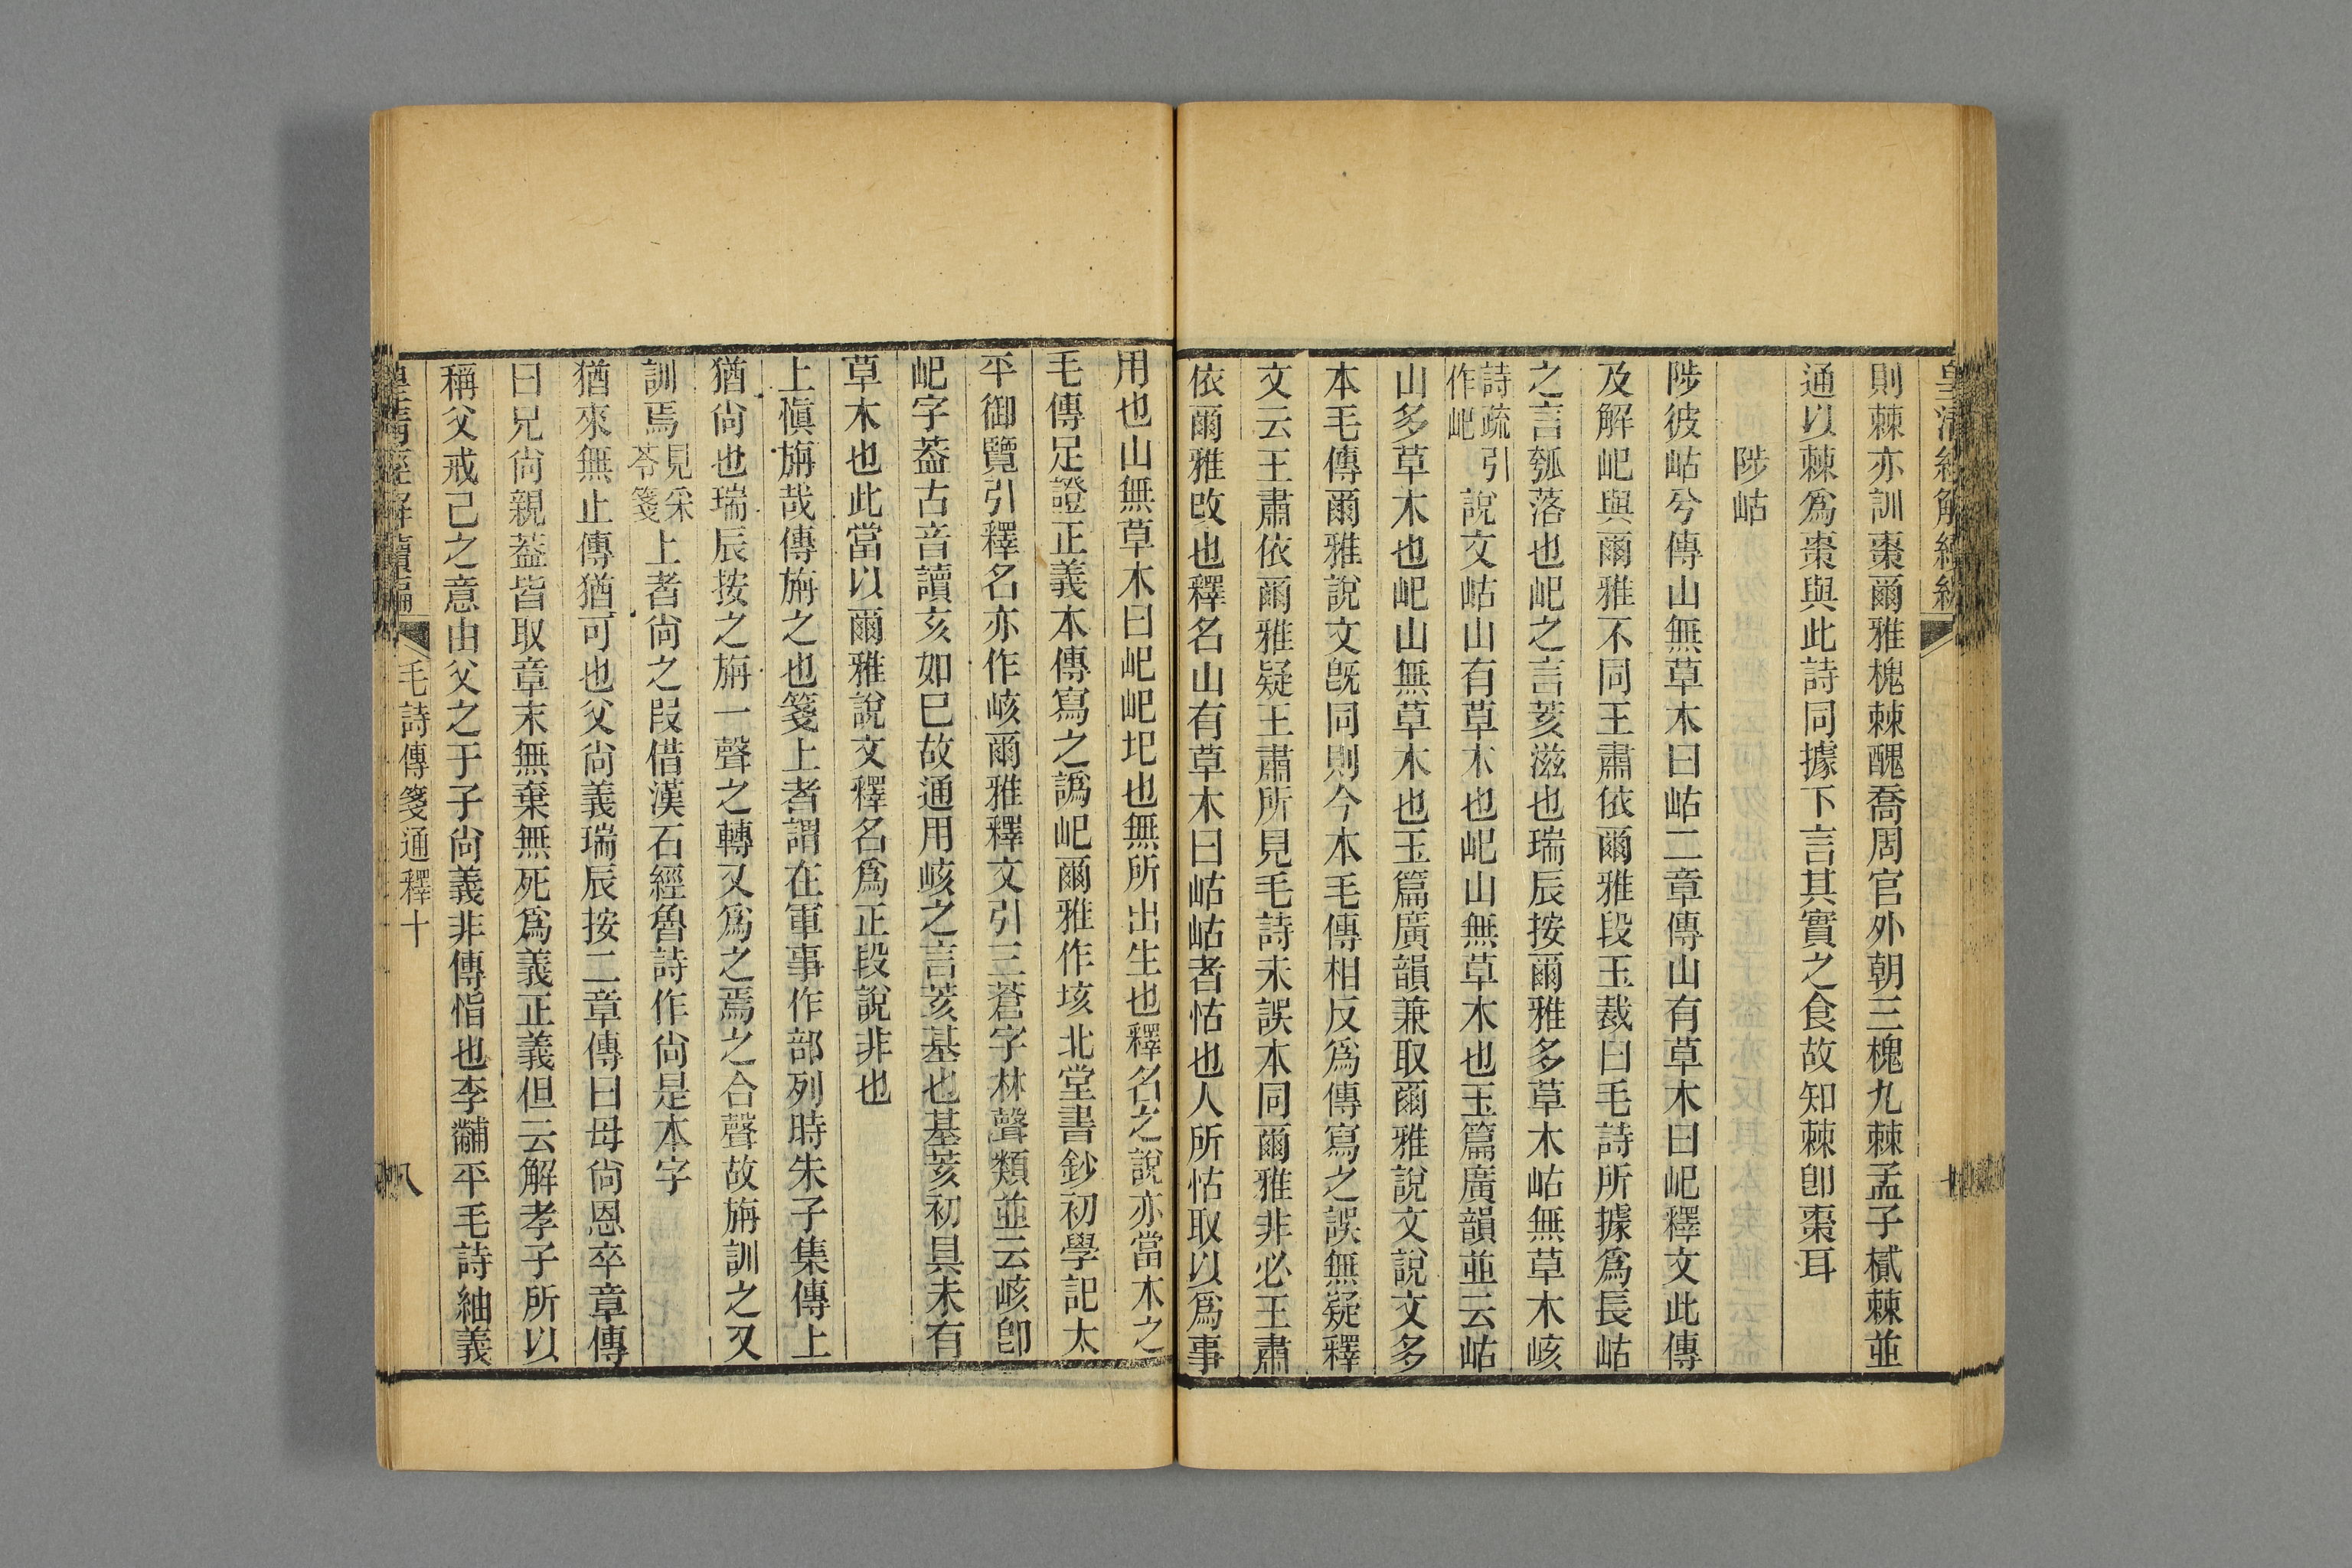 皇清經解續編
則棘亦訓棗爾雅槐棘醜喬周官外朝三槐九棘孟子樲棘並
通以棘爲棗與此詩同據下言其實之食故知棘卽棗耳
陟岵
陟彼岵兮傳山無草木曰岵二章傳山有草木曰屺釋文此傳
及解屺與爾雅不同王肅依爾雅段玉裁曰毛詩所據爲長岵
之言瓠落也屺之言荄滋也瑞辰按爾雅多草木岵無草木峐
詩疏引作屺說文岵山有草木也屺山無草木也玉篇廣韻並云岵
山多草木也屺山無草木也玉篇廣韻兼取爾雅說文說文多
本毛傳爾雅說文旣同則今本毛傳相反爲傳寫之誤無疑釋
文云王肅依爾雅疑王肅所見毛詩未誤本同爾雅非必王肅
依爾雅改也釋名山有草木曰岵岵者怙也人所怙取以爲事
用也山無草木曰屺屺圮也無所出生也釋名之說亦當本之
毛傳足證正義本傳寫之譌屺爾雅作垓北堂書鈔初學記太
平御覽引釋名亦作峐爾雅釋文引三蒼字林聲類並云峐卽
屺字葢古音讀亥如巳故通用峐之言荄基也基荄初具未有
草木也此當以爾雅說文釋名爲正段說非也
上愼旃哉傳旃之也箋上者謂在軍事作部列時朱子集傳上
猶尙也瑞辰按之旃一聲之轉又爲之焉之合聲故旃訓之又
訓焉見采苓箋上者尙之叚借漢石經魯詩作尙是本字
猶來無止傳猶可也父尙義瑞辰按二章傳曰母尙恩卒章傳
曰兄尙親葢皆取章末無棄無死爲義正義但云解孝子所以
稱父戒己之意由父之于子尙義非傳恉也李黼平毛詩紬義
皇淸經解續編
毛詩傳箋通釋十
八